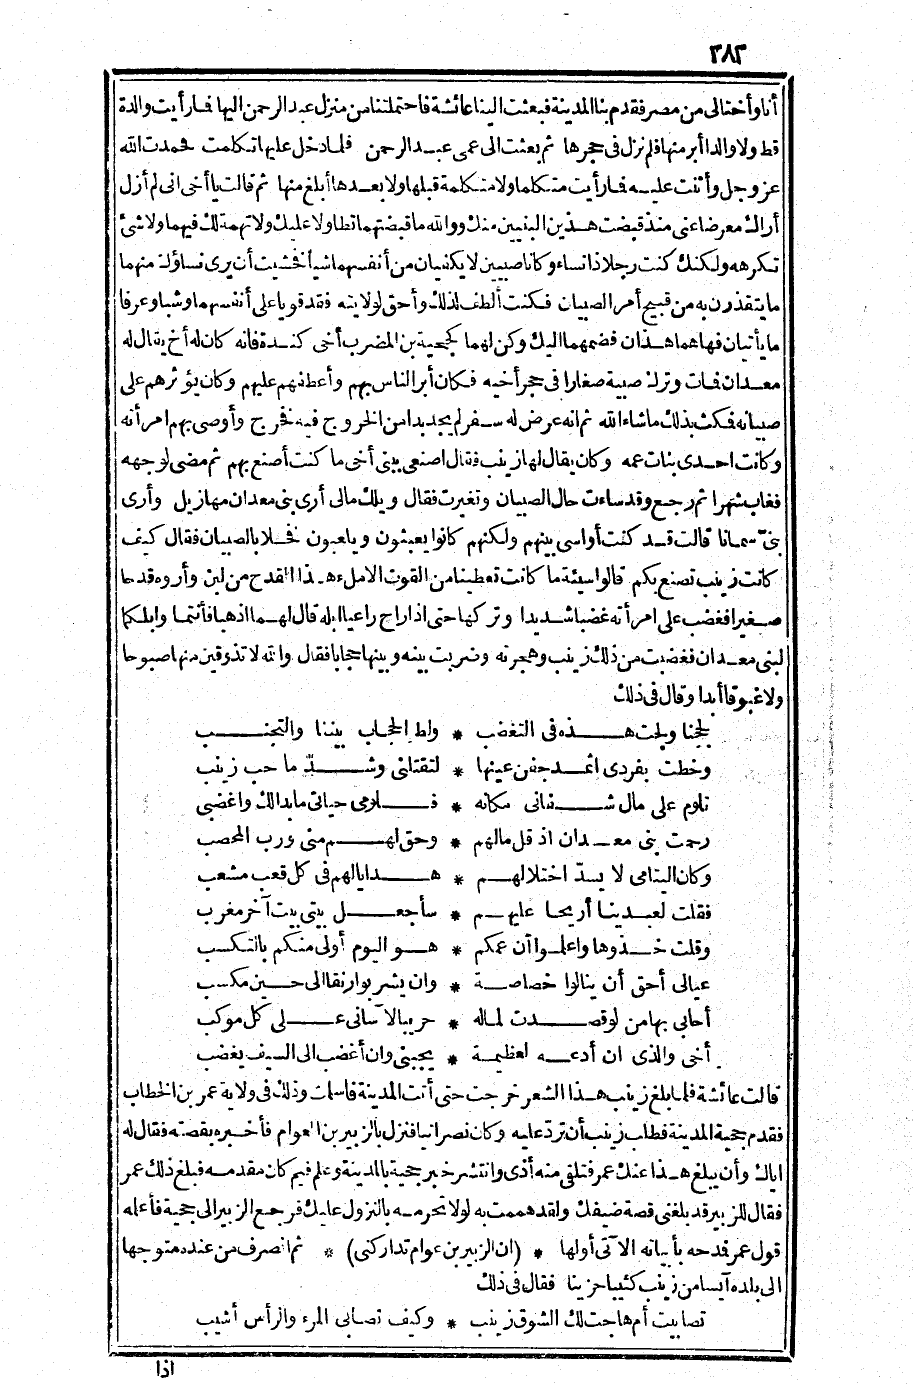 ٣٨٣
أنا وأختا لى من مصر فقدم بنا المدينة فبعثت الينا عائشة فاحتملتنا من منزل عبد الرحمن اليها فما رأيت والدة
قط ولا والدا أبر منها فلم نزل فى حجرها ثم بعثت الى عمى عبد الرحمن فلما دخل عليها تكلمت فحمدت الله
عز وجل وأثنت عليه فما رأيت متكلما ولا متكلمة قبلها ولا بعدها أبلغ منها ثم قالت يا أخى انى لم أزل
أراك معرضا عنى منذ قبضت هذين البنيين منك ووالله ما قبضتهما تطاولا عليك ولا تهمة لك فيهما ولا لشئ
تكرهه ولكنك كنت رجلا ذا نساء وكانا صبيين لا يكفيان من أنفسهما شيأ فخشيت أن يرى نساؤك منهما
ما يتقذرن به من قبيح أمر الصبيان فكنت ألطف لذلك وأحق لولايته فقد قويا على أنفسهما وشبا وعرفا
ما يأتيان فها هما هذان فضمهما اليك وكن لهما كحجية بن المضرب أخى كندة فانه كان له أخ يقال له
معدان فمات وترك صبية صغارا فى حجر أخيه فكان أبر الناس بهم وأعطفهم عليهم وكان يؤثرهم على
صبيانه فمكث بذلك ما شاء الله ثم انه عرض له سفر لم يجد بدا من الخروج فيه فخرج وأوصى بهم امرأته
وكانت احدى بنات عمه وكان يقال لها زينب فقال اصنعى ببنى أخى ما كنت أصنع بهم ثم مضى لوجهه
فغاب شهرا ثم رجع وقد ساءت حال الصبيان وتغيرت فقال ويلك مالى أرى بنى معدان مهازيل وأرى
بنىّ سمانا قالت قد كنت أواسى بينهم ولكنهم كانوا يعبثون ويلعبون فخلا بالصبيان فقال كيف
كانت زينب تصنع بكم قالوا سيئة ما كانت تعطينا من القوت الا ملء هذا القدح من لبن وأروه قدحا
صغيرا فغضب على امرأته غضبا شديدا وتركها حتى اذا راح راعيا ابله قال لهما اذهبا فأنتما وابلكما
لبنى معدان فغضبت من ذلك زينب وهجرته وضربت بينه وبينها حجابا فقال والله لا تذوقين منها صبوحا
ولا غبوقا أبدا وقال فى ذلك
لججنا ولجت هذه فى التغضب * ولط الحجاب بيننا والتجنب
وخطت بفردى اثمد جفن عينها * لتقتلنى وشدّ ما حب زينب
تلوم على مال شفانى مكانه * فلومى حياتى ما بدا لك واغضبى
رحمت بنى معدان اذ قل مالهم * وحق لهم منى ورب المحصب
وكان اليتامى لا يسدّ اختلالهم * هدايا لهم فى كل قعب مشعب
فقلت لعبدينا أريحا عليهم * سأجعل بيتى بيت آخر مغرب
وقلت خذوها واعلموا أن عمكم * هو اليوم أولى منكم بالتكسب
عيالى أحق أن ينالوا خصاصة * وان يشربوا رنقا الى حين مكسب
أحابى بها من لو قصدت لماله * حريبا لآسانى على كل موكب
أخى والذى ان أدعه لعظيمة * يجبنى وان أغضب الى السيف يغضب
قالت عائشة فلما بلغ زينب هذا الشعر خرجت حتى أتت المدينة فأسلمت وذلك فى ولاية عمر بن الخطاب
فقدم حجية المدينة فطلب زينب أن ترد عليه وكان نصرانيا فنزل بالزبير بن العوام فأخبره بقصته فقال له
اياك وأن يبلغ هذا عنك عمر فتلقى منه أذى وانتشر خبر حجية بالمدينة وعلم فيم كان مقدمه فبلغ ذلك عمر
فقال للزبير قد بلغنى قصة ضيفك ولقد هممت به لولا تحرمه بالنزول عليك فرجع الزبير الى حجية فأعلمه
قول عمر فمدحه بأبياته الآتى أولها * (ان الزبير بن عوام تداركنى) * ثم انصرف من عنده متوجها
الى بلده آيسا من زينب كئيبا حزينا فقال فى ذلك
تصابيت أم هاجت لك الشوق زينب * وكيف تصابى المرء والرأس أشيب
اذا